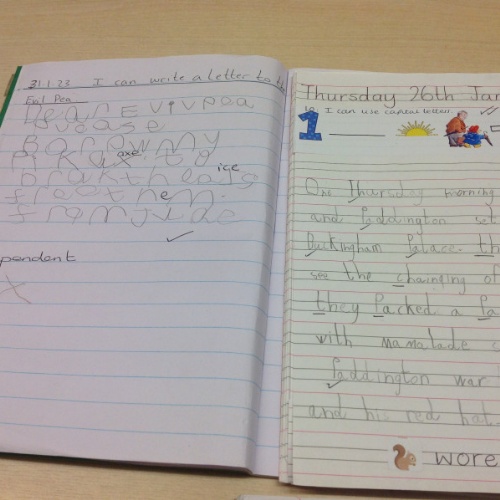 31.1.23 I can write a letter to th
Evil Pea
Dear Evivpea
Borowmy
axe to
ice
freethem
from
pendent
Thursday 26th Jan
1 I can use capital letters.
One Thursday morning
and Paddington set
Buckingham Palace. th
see the chainging of
they Packed a Pa
with mamalade
Paddington war
and his red hat.
wore